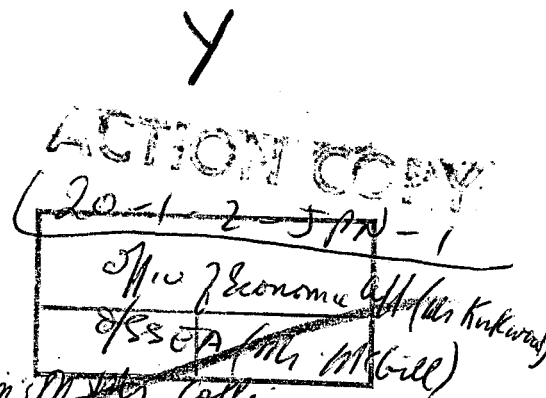 Y
ACTION COPY
20-1-2-JPN-1
Office of Economic Aff (Mr Kirkwood)
O/SSEA (Mr McGill)